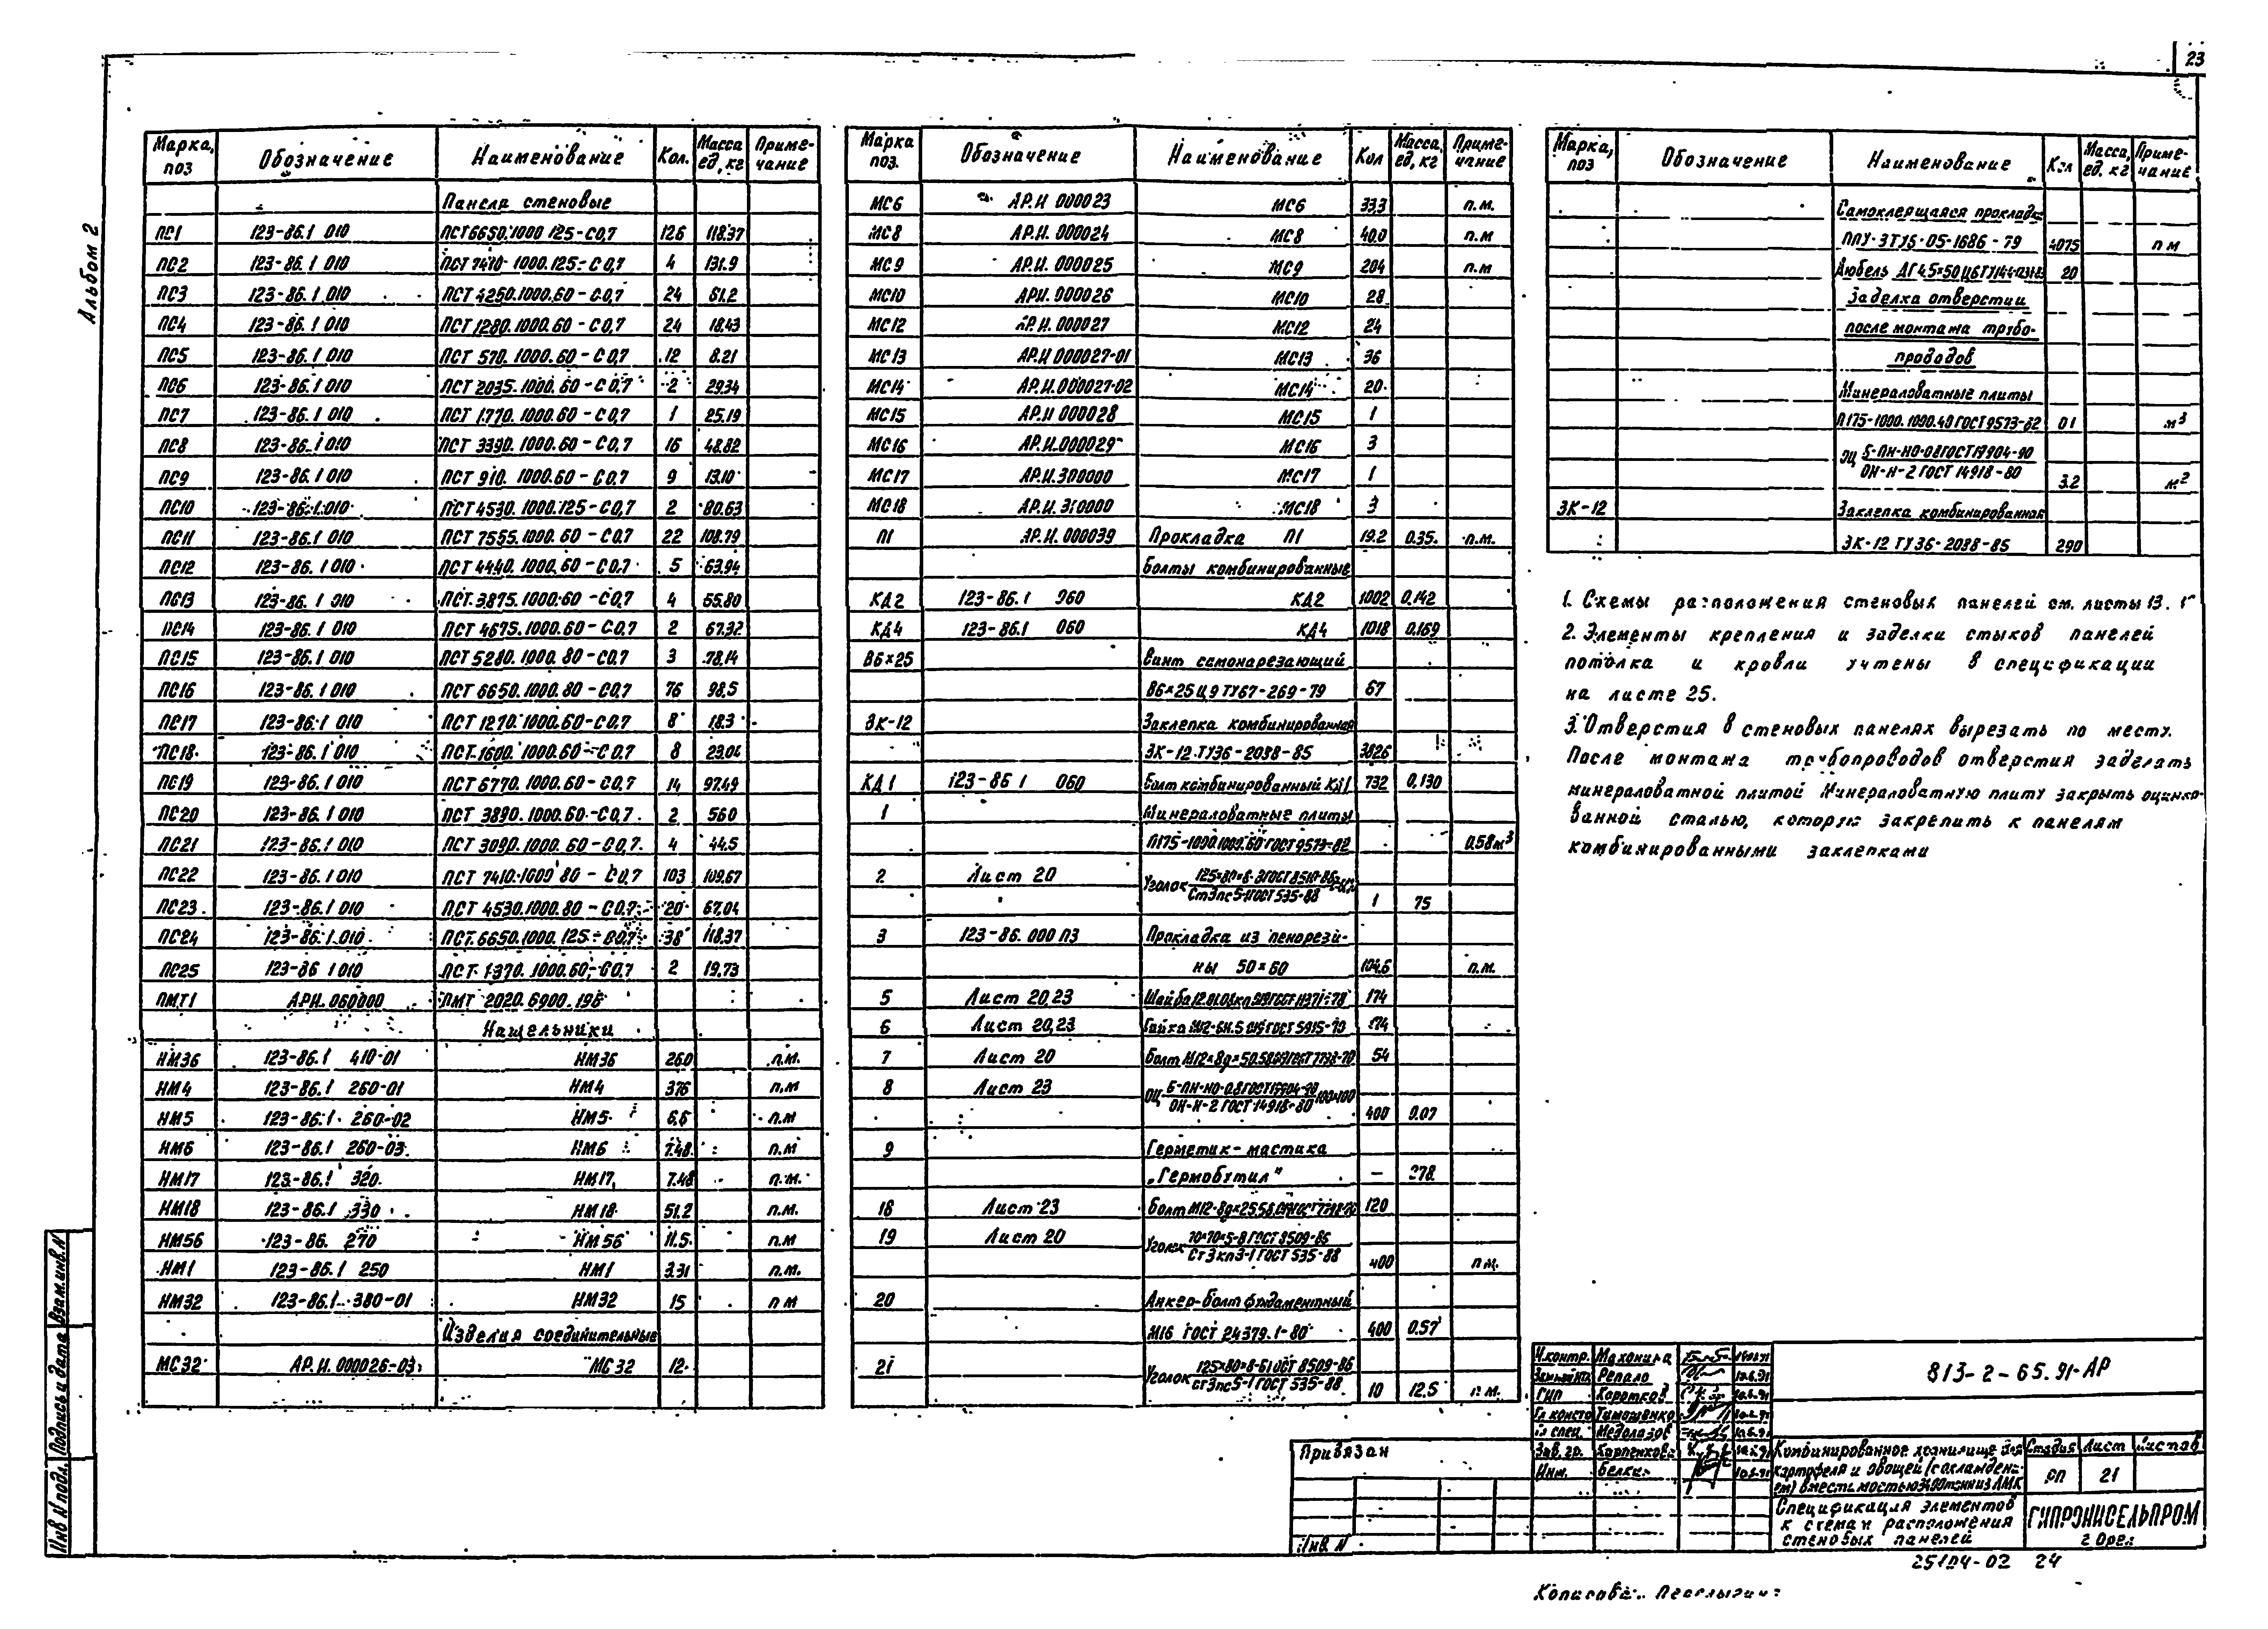 23
Альбом 2
Марка, поз | Обозначение | Наименование | Кол. | Масса ед, кг | Приме-чание
Панели стеновые
ПС1 123-86.1 010 ПСТ 6650.1000 125-С0,7 126 118.37
ПС2 123-86.1 010 ПСТ 7410-1000.125-С0,7 4 131.9
ПС3 123-86.1 010 ПСТ 4250.1000.60-С0,7 24 61.2
ПС4 123-86.1 010 ПСТ 1280.1000.60-С0,7 24 18.43
ПС5 123-86.1 010 ПСТ 570.1000.60-С0,7 12 8.21
ПС6 123-86.1 010 ПСТ 2035.1000.60-С0,7 2 29.34
ПС7 123-86.1 010 ПСТ 1770.1000.60-С0,7 1 25.19
ПС8 123-86.1 010 ПСТ 3390.1000.60-С0,7 16 48.82
ПС9 123-86.1 010 ПСТ 910.1000.60-С0.7 9 13.10
ПС10 123-86.1.010 ПСТ 4530.1000.125-С0,7 2 80.63
ПС11 123-86.1 010 ПСТ 7555.1000.60-С0.7 22 108.79
ПС12 123-86.1 010 ПСТ 4440.1000.60-С0.7 5 63.94
ПС13 123-86.1 010 ПСТ.3875.1000.60-С0,7 4 55.80
ПС14 123-86.1 010 ПСТ 4675.1000.60-С0,7 2 67.32
ПС15 123-86.1 010 ПСТ 5280.1000.80-С0.7 3 78.14
ПС16 123-86.1 010 ПСТ 6650.1000.80-С0,7 76 98.5
ПС17 123-86.1 010 ПСТ 1270.1000.60-С0.7 8 18.3
ПС18 123-86.1 010 ПСТ-1600.1000.60-С0,7 8 23.04
ПС19 123-86.1 010 ПСТ 6770.1000.60-С0,7 14 97.49
ПС20 123-86.1 010 ПСТ 3890.1000.60-С0,7 2 56.0
ПС21 123-86.1 010 ПСТ 3090.1000.60-С0,7 4 44.5
ПС22 123-86.1 010 ПСТ 7410.1000 80-С0,7 103 109.67
ПС23 123-86.1 010 ПСТ 4530.1000.80-С0,7 20 67.04
ПС24 123-86.1.010 ПСТ.6650.1000.125-С0,7 38 118.37
ПС25 123-86 1 010 ПСТ 1370.1000.60-С0,7 2 19.73
ПМТ1 АРИ.060000 ПМТ 2020.6900.196
Нащельники
НМ36 123-86.1 410-01 НМ36 260 п.м.
НМ4 123-86.1 260-01 НМ4 376 п.м
НМ5 123-86.1 260-02 НМ5 6,6 п.м
НМ6 123-86.1 260-03. НМ6 7.48 п.м
НМ17 123-86.1 320. НМ17 7.48 п.м.
НМ18 123-86.1 330 НМ18 51.2 п.м.
НМ56 123-86. 270 НМ56 11.5 п.м
НМ1 123-86.1 250 НМ1 3.31 п.м.
НМ32 123-86.1 380-01 НМ32 15 п м
Изделия соединительные
МС32 АР.И.000026-03 МС32 12
Марка поз. | Обозначение | Наименование | Кол | Масса, ед, кг | Приме-чание
МС6 АР.И 000023 МС6 33,3 п.м.
МС8 АР.И. 000024 МС8 40.0 п.м
МС9 АР.И. 000025 МС9 204 п.м
МС10 АРИ. 000026 МС10 28
МС12 АР.И. 000027 МС12 24
МС13 АР.И 000027-01 МС13 36
МС14 АР.И.000027-02 МС14 20
МС15 АР.И 000028 МС15 1
МС16 АР.И.000029 МС16 3
МС17 АР.И.300000 МС17 1
МС18 АР.И.310000 МС18 3
П1 АР.И.000039 Прокладка П1 19.2 0.35. п.м.
Болты комбинированные
КД2 123-86.1 060 КД2 1002 0.142
КД4 123-86.1 060 КД4 1018 0.169
В6×25 Винт самонарезающий
В6×25 Ц9 ТУ67-269-79 67
ЗК-12 Заклепка комбинированная
ЗК-12 ТУ36-2088-85 3826
КД1 123-86 1 060 Болт комбинированный КД1 732 0.130
1 Минераловатные плиты
П175-1000.1000.60 ГОСТ 9573-82 0.58м³
2 Лист 20 Уголок 125×80×8-
Ст3пс5-1 ГОСТ 535-88 1 75
3 123-86.000 ПЗ Прокладка из пенорези-
ны 50×60 104.6 п.м.
5 Лист 20,23 Шайба 12. ГОСТ 11371-78 174
6 Лист 20,23 Гайка М12-6Н.5 ГОСТ 5915-70 174
7 Лист 20 Болт М12×8g×50.58 ГОСТ 7798-70 54
8 Лист 23 ОЦ Б-ПН-НО-0.8 ГОСТ 19904-90 100×100
ОН-Н-2 ГОСТ 14918-80 400 0.07
9 Герметик-мастика
„Гермобутил" — 278
18 Лист 23 Болт М12-8g×25.58 ГОСТ 7798-70 120
19 Лист 20 Уголок 70×70×5-Б ГОСТ 8509-86
Ст3кп3-1 ГОСТ 535-88 400 п м.
20 Анкер-болт фундаментный
М16 ГОСТ 24379.1-80 400 0.57
21 Уголок 125×80×8-Б ГОСТ 8509-86
ст3пс5-1 ГОСТ 535-88 10 12.5 п.м.
Марка, поз | Обозначение | Наименование | Кол | Масса, ед. кг | Приме-чание
Самоклеящаяся прокладка
ППУ-3 ТУ6-05-1686-79 4075 п м
Дюбель ДГ 4.5×50 Ц6 20
Заделка отверстии
после монтажа трубо-
проводов
Минераловатные плиты
П175-1000.1000.40 ГОСТ 9573-82 01 м³
ОЦ Б-ПН-НО-0.8 ГОСТ 19904-90
ОН-Н-2 ГОСТ 14918-80 3.2 м²
ЗК-12 Заклепка комбинированная
ЗК-12 ТУ36-2088-85 290
1. Схемы расположения стеновых панелей см. листы 13.
2. Элементы крепления и заделки стыков панелей
потолка и кровли учтены в спецификации
на листе 25.
3. Отверстия в стеновых панелях вырезать по месту.
После монтажа трубопроводов отверстия заделать
минераловатной плитой Минераловатную плиту закрыть оцинко-
ванной сталью, которую закрепить к панелям
комбинированными заклепками
Привязан
Инв N
Н.контр. Махонина
Репало
ГИП Коротков
Гл констр Тимошенко
Гл спец. Медолазов
Зав. гр. Карпенкова
Инж. Белкин
813-2-65.91-АР
Комбинированное хранилище для
картофеля и овощей (с охлажден-
ем) вместимостью 3400 тонн из ЛМК
Стадия Лист Листов
РП 21
Спецификация элементов
к схемам расположения
стеновых панелей
ГИПРОНИСЕЛЬПРОМ
г Орел
25104-02 24
Взам.инв.N
Подпись и дата
Инв N подл.